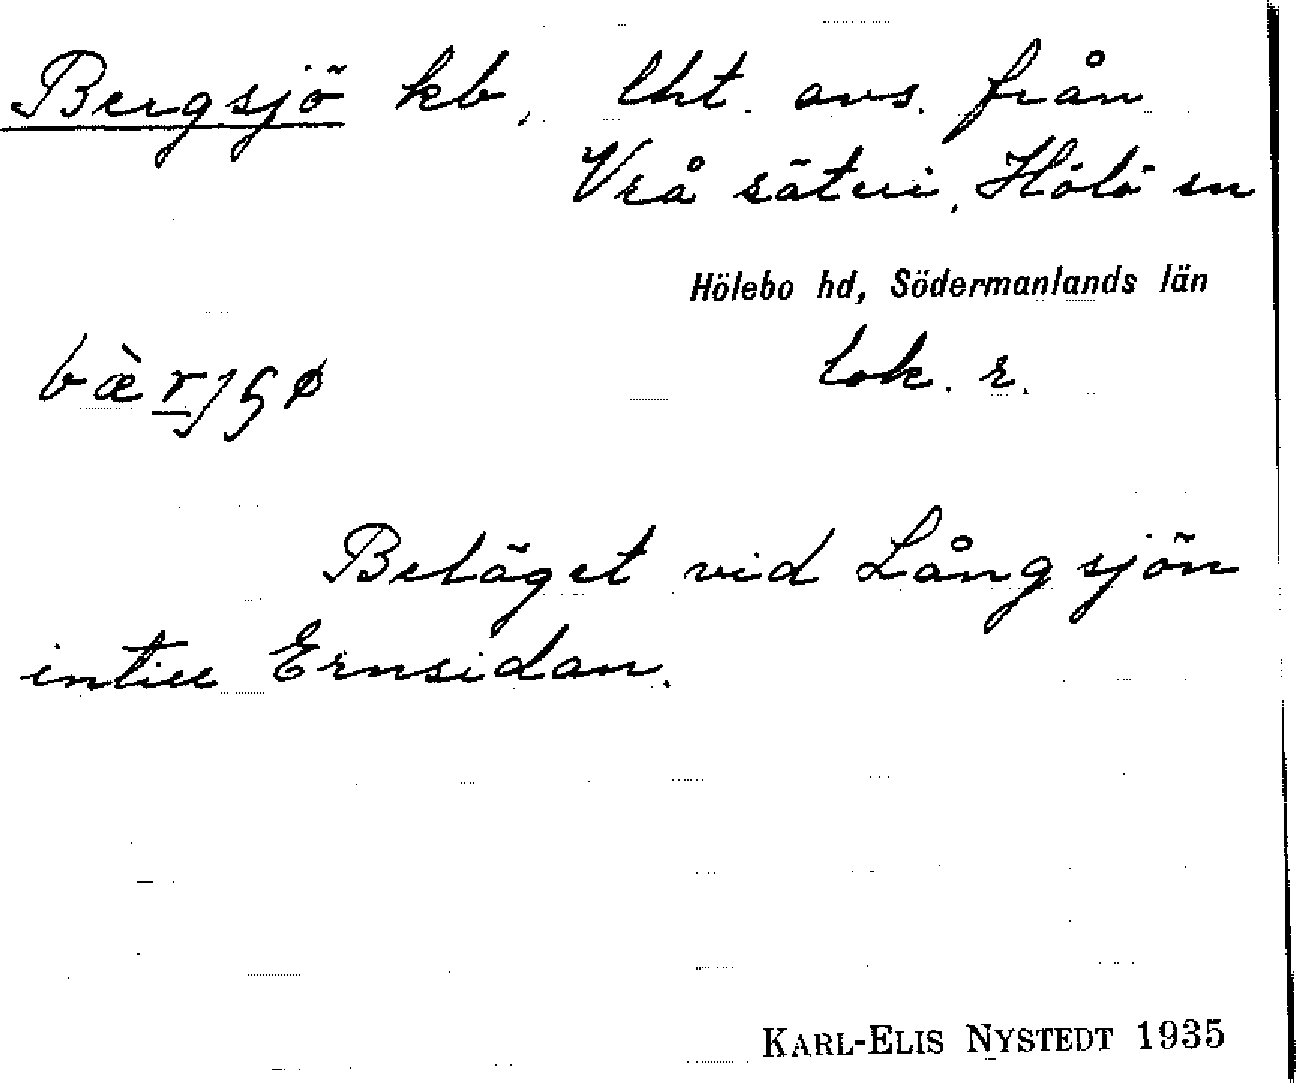 Bergsjö kb, lht. avs. från
Vrå säteri, Hölö sn
Hölebo hd, Södermanlands län
bærjʃø lok. r.
Beläget vid Långsjön
intill Ernsidan.
KARL-ELIS NYSTEDT 1935